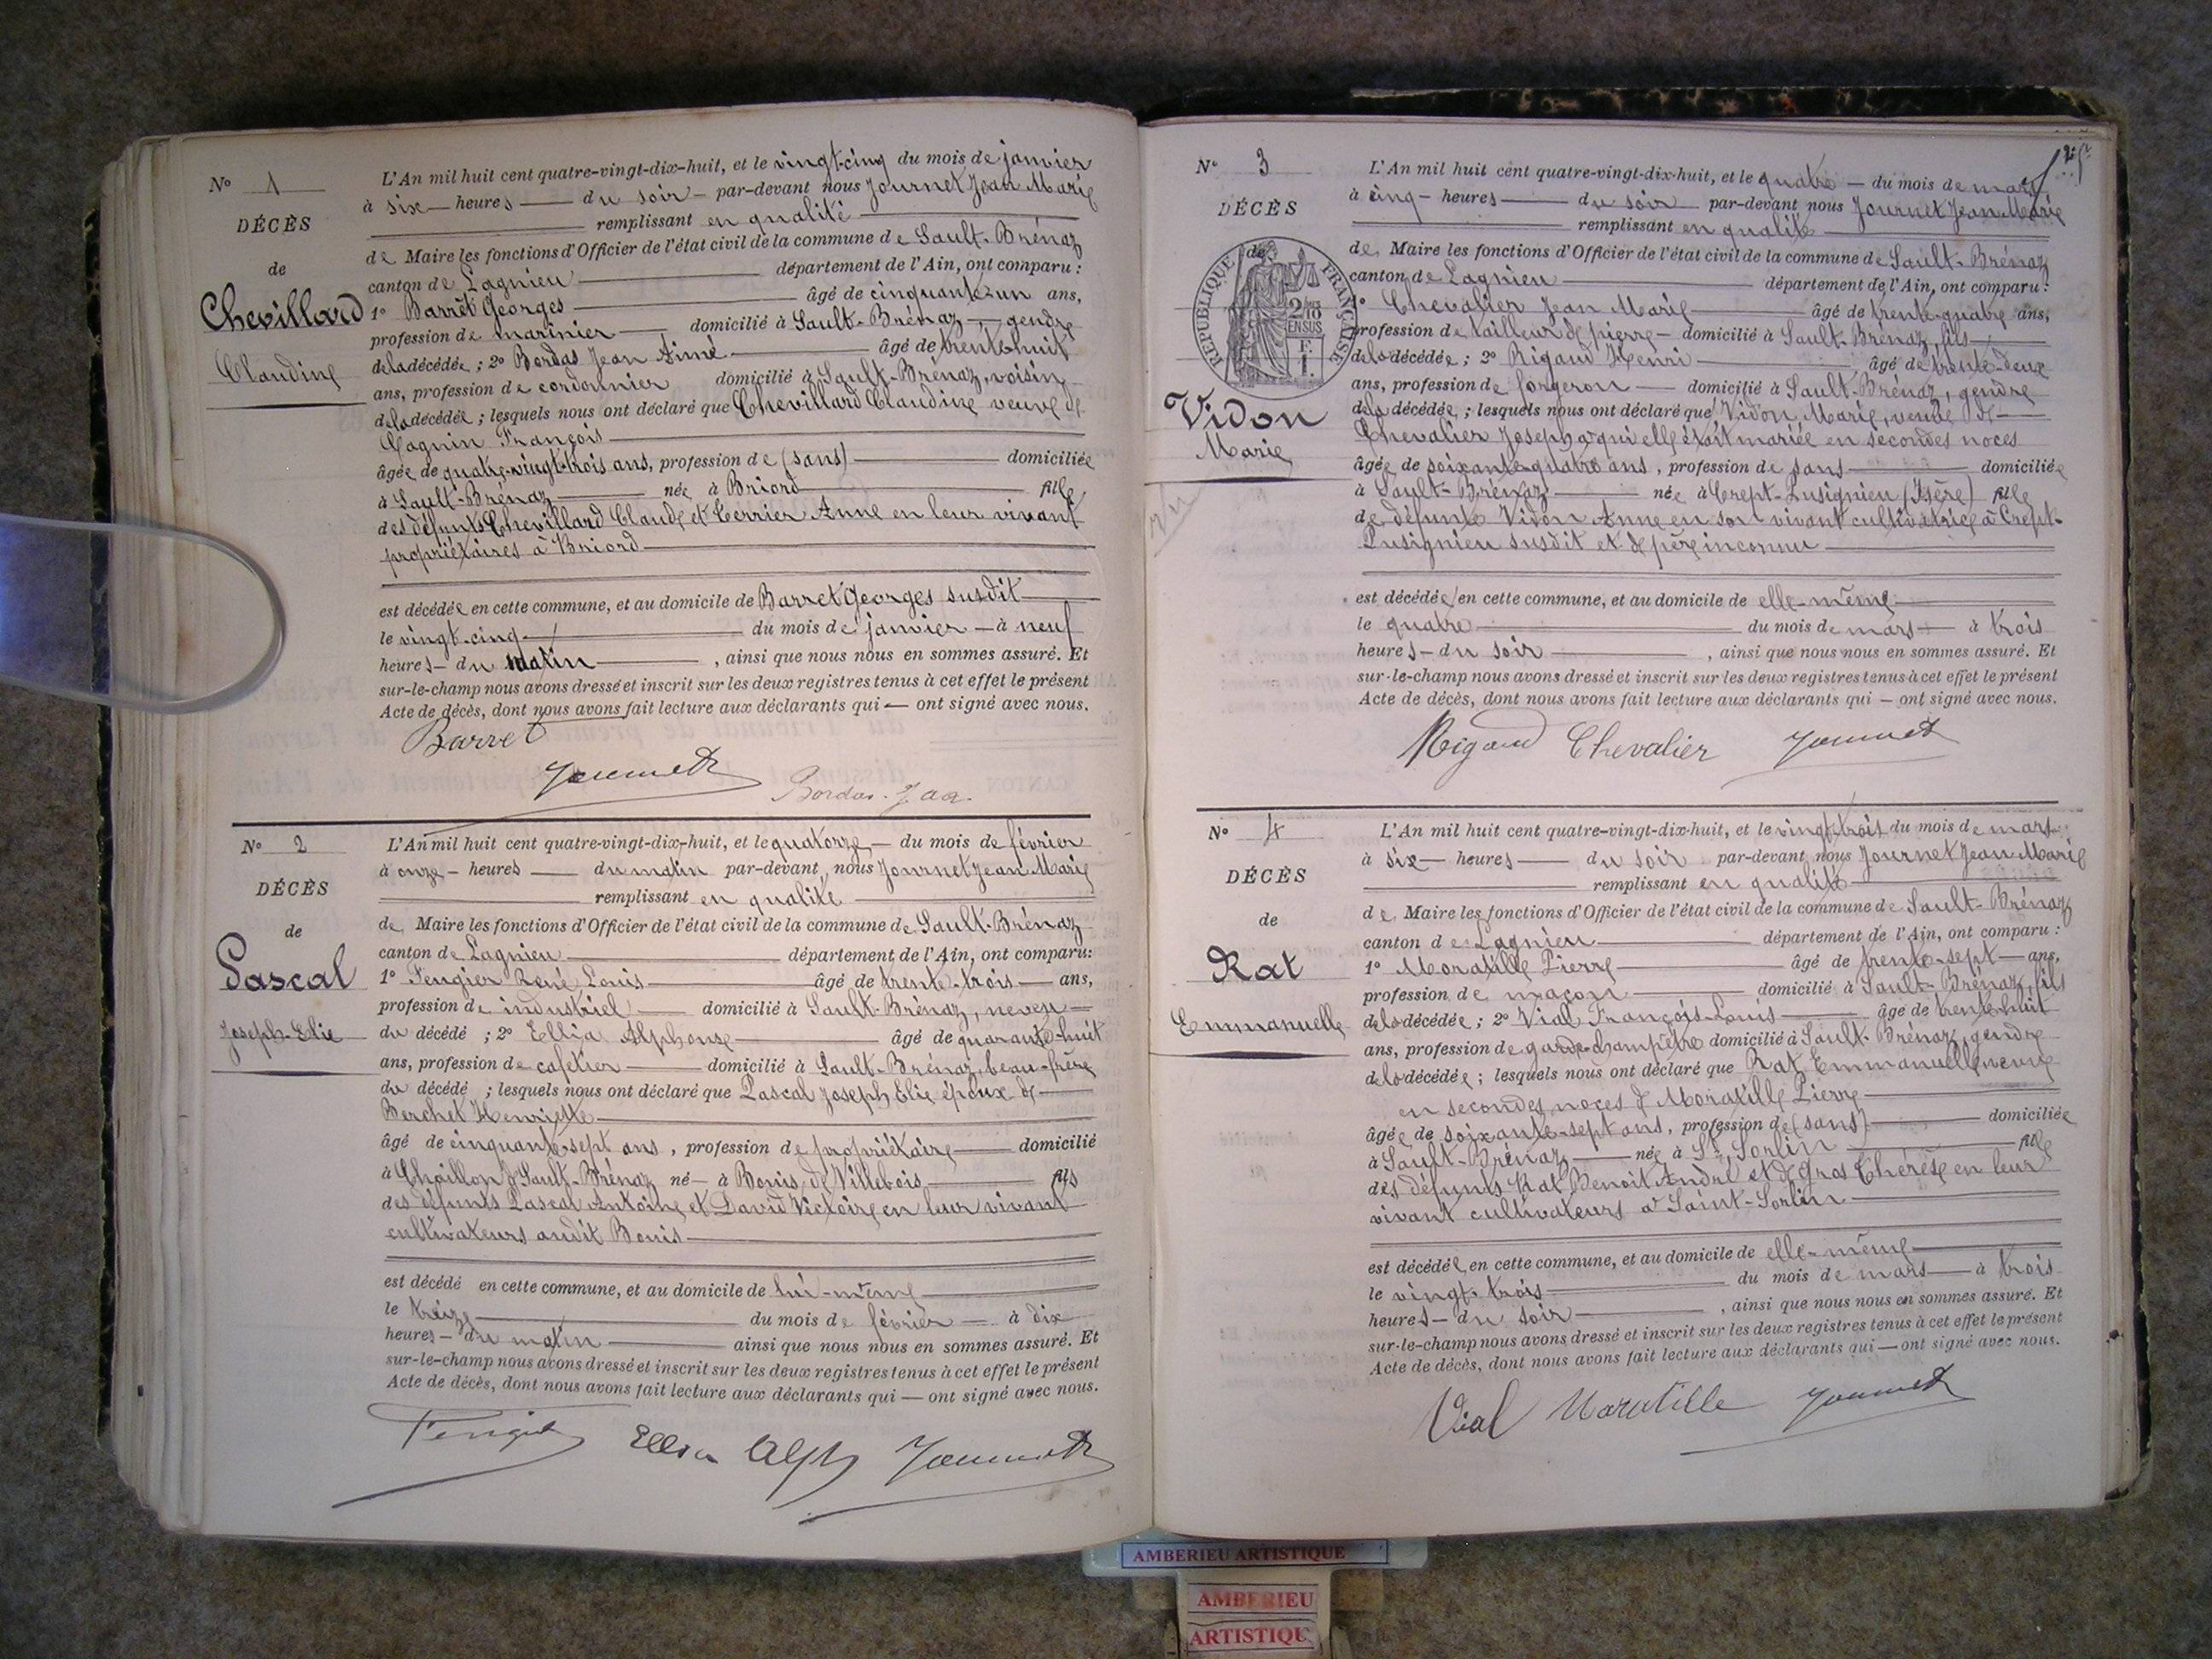 N° 1
DÉCÈS
de
Chevillard
Claudine
L'An mil huit cent quatre-vingt-dix-huit, et le vingt-cinq du mois de janvier
à six heures du soir par-devant nous Journet Jean Marie
remplissant en qualité
de Maire les fonctions d'Officier de l'état civil de la commune de Sault-Brénaz
canton de Lagnieu département de l'Ain, ont comparu :
1° Barret Georges âgé de cinquante-un ans,
profession de marinier domicilié à Sault-Brénaz, gendre
de la décédée ; 2° Bordas Jean Aimé âgé de trente-huit
ans, profession de cordonnier domicilié à Sault-Brénaz, voisin
de la décédée ; lesquels nous ont déclaré que Chevillard Claudine veuve de
Cagnin François
âgée de quatre-vingt-trois ans, profession de (sans) domiciliée
à Sault-Brénaz née à Briord fille
des défunts Chevillard Claude et Terrier Anne en leur vivant
propriétaires à Briord
est décédée en cette commune, et au domicile de Barret Georges susdit
le vingt-cinq du mois de janvier à neuf
heures du matin , ainsi que nous nous en sommes assuré. Et
sur-le-champ nous avons dressé et inscrit sur les deux registres tenus à cet effet le présent
Acte de décès, dont nous avons fait lecture aux déclarants qui — ont signé avec nous.
Barret
Journet
Bordas
N° 2
DÉCÈS
de
Pascal
Joseph-Elie
L'An mil huit cent quatre-vingt-dix-huit, et le quatorze du mois de février
à onze heures du matin par-devant nous Journet Jean Marie
remplissant en qualité
de Maire les fonctions d'Officier de l'état civil de la commune de Sault-Brénaz
canton de Lagnieu département de l'Ain, ont comparu :
1° Fengier René Louis âgé de trente-trois ans,
profession de industriel domicilié à Sault-Brénaz, neveu
du décédé ; 2° Ellia Alphonse âgé de quarante-huit
ans, profession de cafetier domicilié à Sault-Brénaz, beau-frère
du décédé ; lesquels nous ont déclaré que Pascal Joseph Elie époux de
Berchet Henriette
âgé de cinquante-sept ans, profession de propriétaire domicilié
à Sault-Brénaz né à Bouis de Villebois fils
des défunts Pascal Antoine et David Victoire en leur vivant
cultivateurs audit Bouis
est décédé en cette commune, et au domicile de lui-même
le treize du mois de février à dix
heures du matin ainsi que nous nous en sommes assuré. Et
sur-le-champ nous avons dressé et inscrit sur les deux registres tenus à cet effet le présent
Acte de décès, dont nous avons fait lecture aux déclarants qui — ont signé avec nous.
Ellia Alph Journet
N° 3
DÉCÈS
de
RÉPUBLIQUE FRANÇAISE
Vidon
Marie
L'An mil huit cent quatre-vingt-dix-huit, et le quatre — du mois de mars
à cinq heures du soir par-devant nous Journet Jean Marie
remplissant en qualité
de Maire les fonctions d'Officier de l'état civil de la commune de Sault-Brénaz
canton de Lagnieu département de l'Ain, ont comparu :
1° Chevalier Jean Marie âgé de trente-quatre ans,
profession de tailleur de pierre domicilié à Sault-Brénaz, fils
de la décédée ; 2° Rigaud Henri âgé de trente-deux
ans, profession de forgeron domicilié à Sault-Brénaz, gendre
de la décédée ; lesquels nous ont déclaré que Vidon Marie, veuve de
Chevalier Joseph à qui elle était mariée en secondes noces
âgée de soixante-quatre ans, profession de sans domiciliée
à Sault-Brénaz née à Crept-Pusignieu (Isère) fille
de défunte Vidon Anne en son vivant cultivatrice à Crept-
Pusignieu susdit et de père inconnu
est décédée en cette commune, et au domicile de elle-même
le quatre du mois de mars à trois
heures du soir , ainsi que nous nous en sommes assuré. Et
sur-le-champ nous avons dressé et inscrit sur les deux registres tenus à cet effet le présent
Acte de décès, dont nous avons fait lecture aux déclarants qui — ont signé avec nous.
Rigaud Chevalier Journet
N° 4
DÉCÈS
de
Rat
Emmanuelle
L'An mil huit cent quatre-vingt-dix-huit, et le vingt-trois du mois de mars
à six heures du soir par-devant nous Journet Jean Marie
remplissant en qualité
de Maire les fonctions d'Officier de l'état civil de la commune de Sault-Brénaz
canton de Lagnieu département de l'Ain, ont comparu :
1° Moratille Pierre âgé de trente-sept ans,
profession de maçon domicilié à Sault-Brénaz, fils
de la décédée ; 2° Vial François-Louis âgé de trente-huit
ans, profession de garde-champêtre domicilié à Sault-Brénaz, gendre
de la décédée ; lesquels nous ont déclaré que Rat Emmanuelle veuve
en secondes noces de Moratille Pierre
âgée de soixante-sept ans, profession de (sans) domiciliée
à Sault-Brénaz née à St Sorlin fille
des défunts Rat Benoit André et de Gros Thérèse en leur
vivant cultivateurs à Saint-Sorlin
est décédée en cette commune, et au domicile de elle-même
le vingt-trois du mois de mars à trois
heures du soir , ainsi que nous nous en sommes assuré. Et
sur-le-champ nous avons dressé et inscrit sur les deux registres tenus à cet effet le présent
Acte de décès, dont nous avons fait lecture aux déclarants qui — ont signé avec nous.
Vial Moratille Journet
AMBERIEU ARTISTIQUE
AMBERIEU
ARTISTIQU